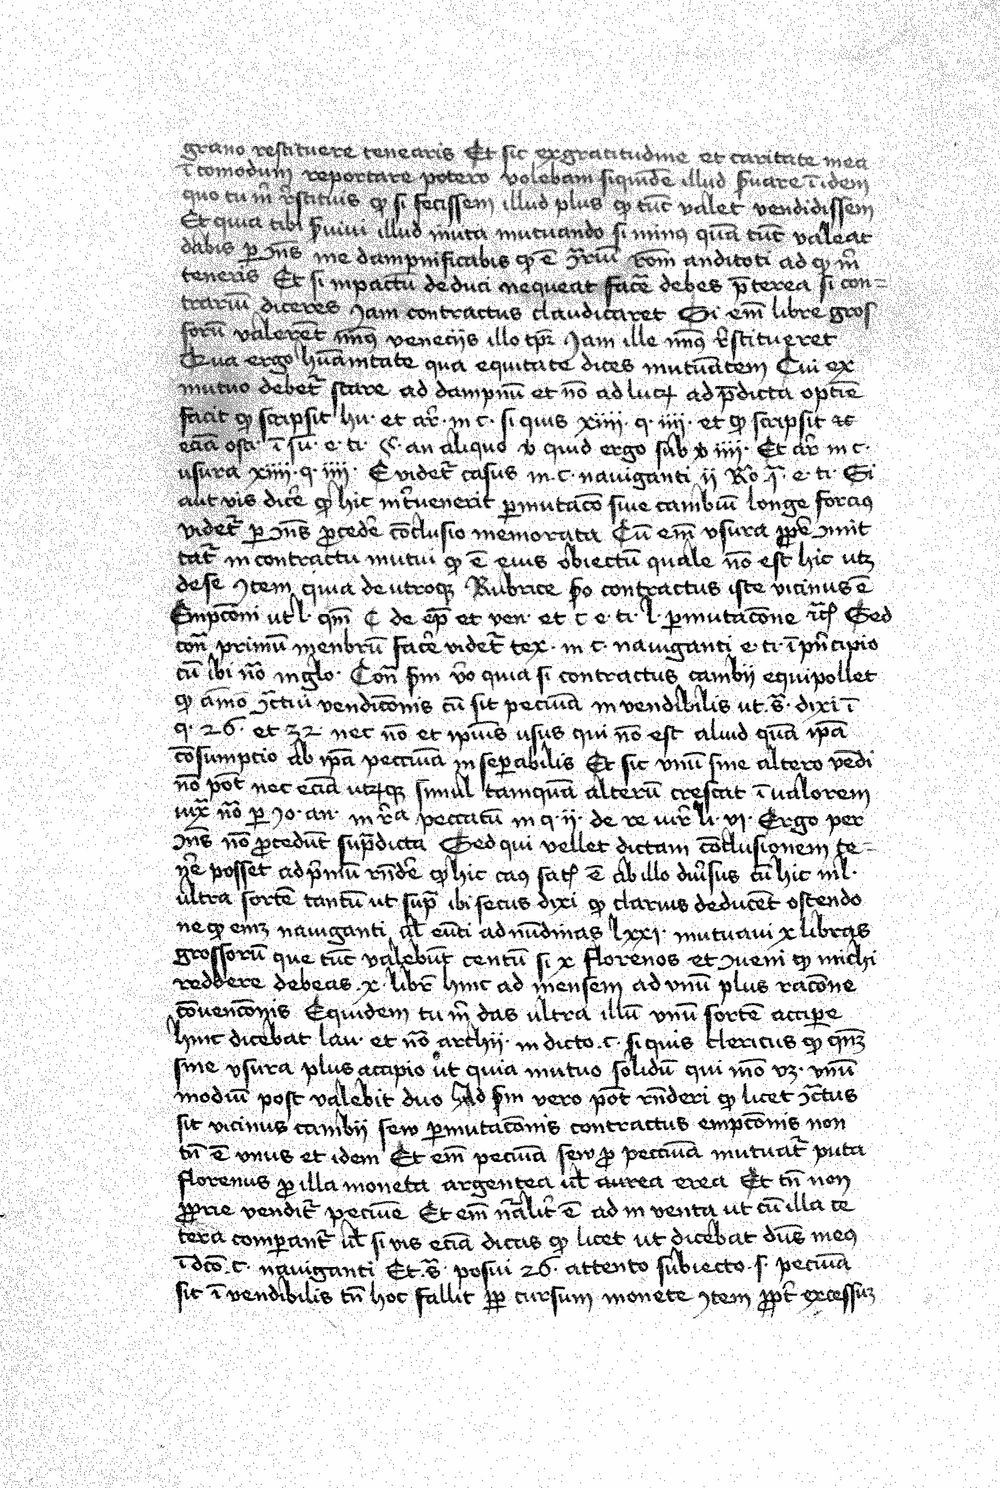 grano restituere tenearis Et sic ex gratitudine et caritate mea
ī comodum reportare potero volebam siquidē illud p̄uare ī idem
quo tu m̄ r̄stituis qꝫ si fecissem illud plus qꝫ tūc valet vendidissem
Et quia tibi p̄uiui illud muta mutuando si minꝰ quā tūc valeat
dabis ꝑ ꝯn̄s me dampnificabis qꝫ ē ꝯ̄riū
teneris Et si in pactū deduci nequeat fac̄e debes p̄terea si con=
trariū diceres Jam contractus claudicaret Si em̄ libre gros
sorū valerēt venecijs illo tp̄r Jam ille r̄stitueret
Qua ergo hūanitate qua equitate dices mutuātem Cui ex
mutuo debet̄ stare ad dampnū et nō ad lucꝝ ad p̄dicta optīe
facit qꝫ scripsit hu· et ar̄· in c· si quis xiiii· q· iiii· et qꝫ scripsit ⁊c
eciā osti· ī su̅· e· ti· §· an aliquo ꝟ quid ergo Et ar̄ in c·
usura xiiii· q· iiii· Et videt̄ casus in c· nauiganti ii Rō· e· ti· Si
aut vis dicē qꝫ hic int̄uenerit ꝑmutacō siue cambiū longe forciꝰ
videt̄ ꝑ ꝯn̄s ꝓcedē cōclusio memorata Cū em̄ vsura ꝓprie ꝯmit
tat̄ in contractu mutui qꝫ ē eius obiectū quale nō est hic utꝫ
de se Jtem quia de utroqꝫ Rubrice contractus iste vicinus ē
Empcōni ut l· de ep̄ et ven· et c e· ti· l· ꝑmutacōne Sed
con̄ primū menbrū facē videt̄ tex· in c· nauiganti e· ti· ī pn̄cipio
cū ibi nō in glo· Con̄ v̄o quia si contractus cambij equipollet
qꝫ āmō vendicōnis cū sit pecunia in vendibilis ut· s̄· dixi ī
q· 26· et 32 nec nō et ipius usus qui nō est aliud quā ipā
cōsumpcio ab ipā peccunia inseꝑabilis Et sic vnū sine altero vēdi
nō pōt nec eciā utrūqꝫ simul tamquā alterū crescat ī valorem
iux̄ nō ꝑ Jo· an· in r̄a peccatū in q· ii· de re iur̄ li· vi· Ergo per
ꝯn̄s nō ꝓcedūt sup̄dicta Sed qui vellet dictam cōclusionem te=
nēe posset ad p̄mū rn̄dē qꝫ hic ab illo diūsus cū hic nil·
ultra sortē tantū ut sup̄ ibi secus dixi qꝫ clarius deducēt ostendo
neqꝫ emꝫ nauiganti ul̄ eūti ad nūdinas lxxi· mutuaui x libras
grossorū que tūc valebūt centū si x florenos et ꝯueni qꝫ michi
reddere debeas· x· libr̄ hinc ad mensem ad vnū plus racōne
cōuencōnis Equidem tu m̄ das ultra illū vnū sortē accipe
hinc dicebat lau· et nō archi· in dicto· c· si quis clericus qꝫ
sine vsura plus accipio ut quia mutuo solidū qui mō vꝫ· vnū
modiū post valebit duo Ad vero pōt rn̄deri qꝫ licet ꝯ̄ctus
sit vicinus cambij sew ꝑmutacōnis contractus empcōnis non
tn̄ ē vnus et idem Et em̄ pecunia sew ꝓ peccunia mutuat̄ puta
florenus ꝓ illa moneta argentea ul̄ aurea erea Et tn̄ non
ꝓprie vendit̄ pecunie Et em̄ nāliī ē ad in venta ut cū illa ce
tera comꝑant̄ ul̄ si vis eciā dicas qꝫ licet ut dicebat dn̄s meꝰ
ī dc̄o· c· nauiganti Et· s̄· posui 26· attento subiecto· s· pecunia
sit ī vendibilis tn̄ hoc fallit ꝓpt̄ cursum monete Jtem ꝓpt̄ excessuꝫ